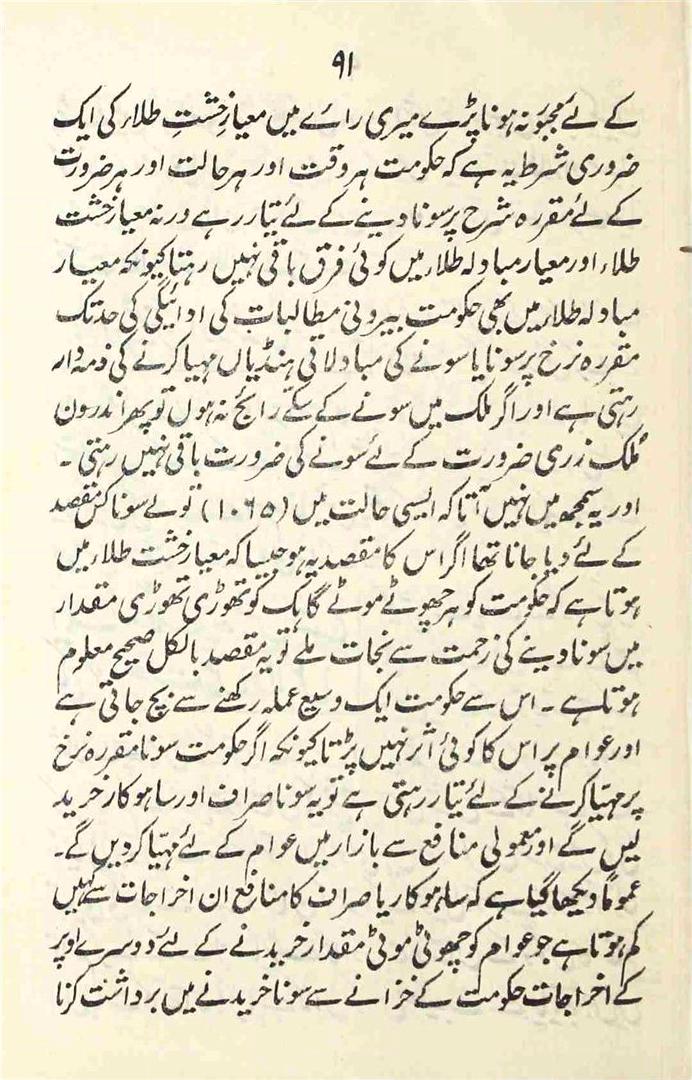 ۹۱
کے لئے مجبور نہ ہونا پڑے میری رائے میں معیار خشتِ طلاء کی ایک
ضروری شرط یہ ہے کہ حکومت ہر وقت اور ہر حالت اور ہر ضرورت
کے لئے مقررہ شرح پر سونا دینے کے لئے تیار رہے ورنہ معیار خشت
طلاء اور معیار مبادلہ طلاء میں کوئی فرق باقی نہیں رہتا کیونکہ معیار
مبادلہ طلاء میں بھی حکومت بیرونی مطالبات کی ادائیگی کی حد تک
مقررہ نرخ پر سونا یا سونے کی مبادلاتی ہنڈیاں مہیا کرنے کی ذمہ دار
رہتی ہے اور اگر ملک میں سونے کے سکے رائج نہ ہوں تو پھر اندرون
مُلک زرمی ضرورت کے لئے سونے کی ضرورت باقی نہیں رہتی ۔
اور یہ سمجھ میں نہیں آتا کہ ایسی حالت میں (۱۰۶۵) تولے سونا کس مقصد
کے لئے دیا جانا تھا اگر اس کا مقصد یہ ہو جیسا کہ معیار خشت طلاء میں
ہوتا ہے کہ حکومت کو ہر چھوٹے موٹے گاہک کو تھوڑی تھوڑی مقدار
میں سونا دینے کی زحمت سے نجات ملے تو یہ مقصد بالکل صحیح معلوم
ہوتا ہے ۔ اس سے حکومت ایک وسیع عملہ رکھنے سے بچ جاتی ہے
اور عوام پر اس کا کوئی اثر نہیں پڑتا کیونکہ اگر حکومت سونا مقررہ نرخ
پر مہیا کرنے کے لئے تیار رہتی ہے تو یہ سونا صراف اور ساہوکار خرید
لیں گے اور معمولی منافع سے بازار میں عوام کے لئے مہیا کر دیں گے۔
عموماً دیکھا گیا ہے کہ ساہوکار یا صراف کا منافع ان اخراجات سے کہیں
کم ہوتا ہے جو عوام کو چھوٹی موٹی مقدار خریدنے کے لئے دوسرے اوپر
کے اخراجات حکومت کے خزانے سے سونا خریدنے میں برداشت کرنا